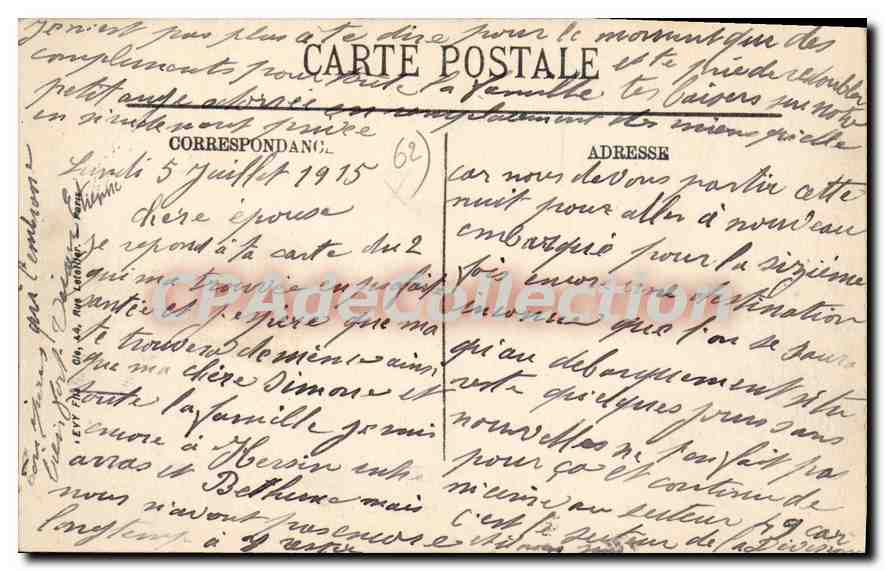 je n'est pas plus a te dire pour le moment que des
CARTE POSTALE
compliments pour toute la famille et te prie de redoubler
petit ange adorée en remplacement des miens qu'elle
tes baisers sur notre
en si udenout privée
CORRESPONDANCE
62
ADRESSE
Lundi 5 Juillet 1915
chère épouse
je repond à ta carte du 2
qui ma trouvée en parfait
santée et j'espère que ma
te trouvera de même ainsi
que ma chère Simone et
toute la famille je suis
encore à Hersin entre
arras et Bethune mais
nous n'avont pas encore
longtemp à y restée
car nous devons partir cette
nuit pour aller à nouveau
embarqué pour la sizième
fois encore une destination
inconnu que l'on se saura
qu'au debarquement si tu
reste quelques jours sans
nouvelles ne t'en fait pas
pour ça et continue de
m'écrire au secteur 49 car
c'est le secteur de la Division
ton époux qui t'embrasse
bien fort
Etienne
LEVY Fils Cie, 44, Rue Letellier. - Paris
CPAdeCollection